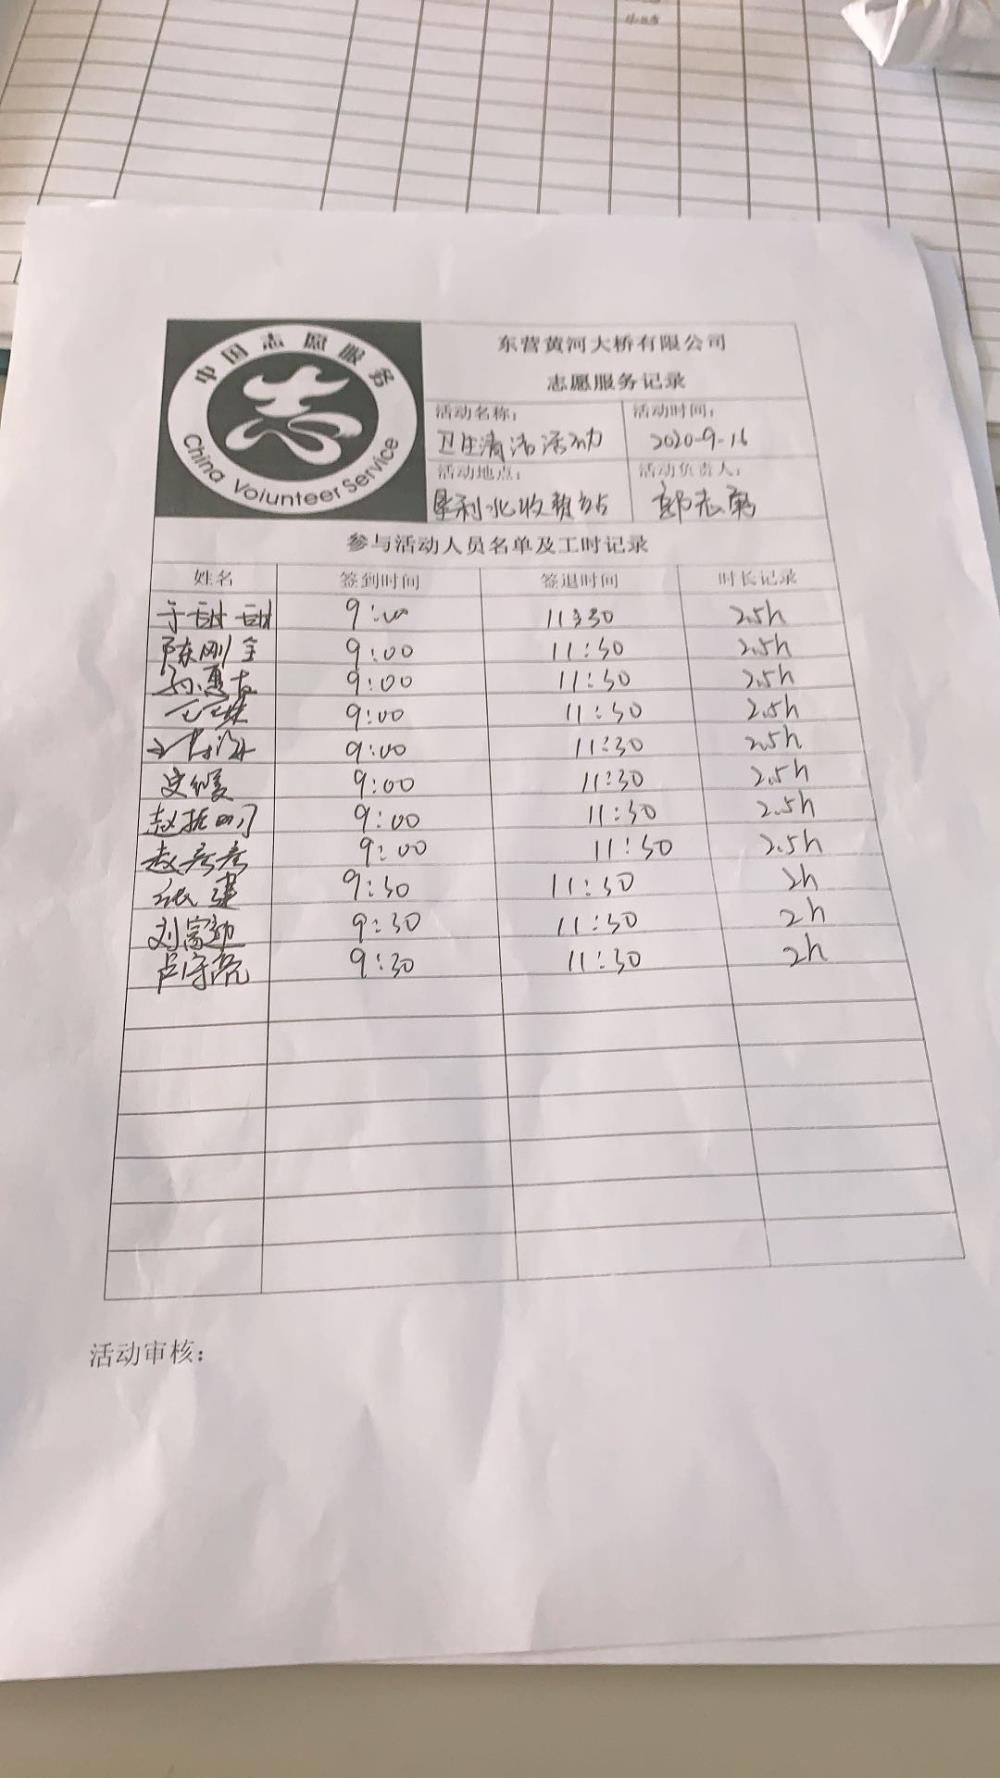 中国志愿服务
China Volunteer Service
东营黄河大桥有限公司
志愿服务记录
活动名称： 活动时间：
卫生清洁活动 2020-9-16
活动地点： 活动负责人：
垦利北收费站 郭志勇
参与活动人员名单及工时记录
姓名 签到时间 签退时间 时长记录
于甜甜 9:00 11:30 2.5h
陈刚 9:00 11:30 2.5h
9:00 11:30 2.5h
9:00 11:30 2.5h
9:00 11:30 2.5h
9:00 11:30 2.5h
赵振 9:00 11:30 2.5h
赵彦彦 9:00 11:30 2.5h
张建 9:30 11:30 2h
刘富勤 9:30 11:30 2h
卢守亮 9:30 11:30 2h
活动审核：